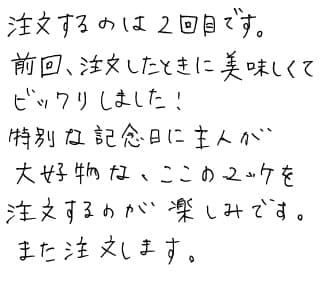 注文するのは2回目です。
前回、注文したときに美味しくて
ビックリしました!
特別な記念日に主人が
大好物な、ここのユッケを
注文するのが楽しみです。
また注文します。